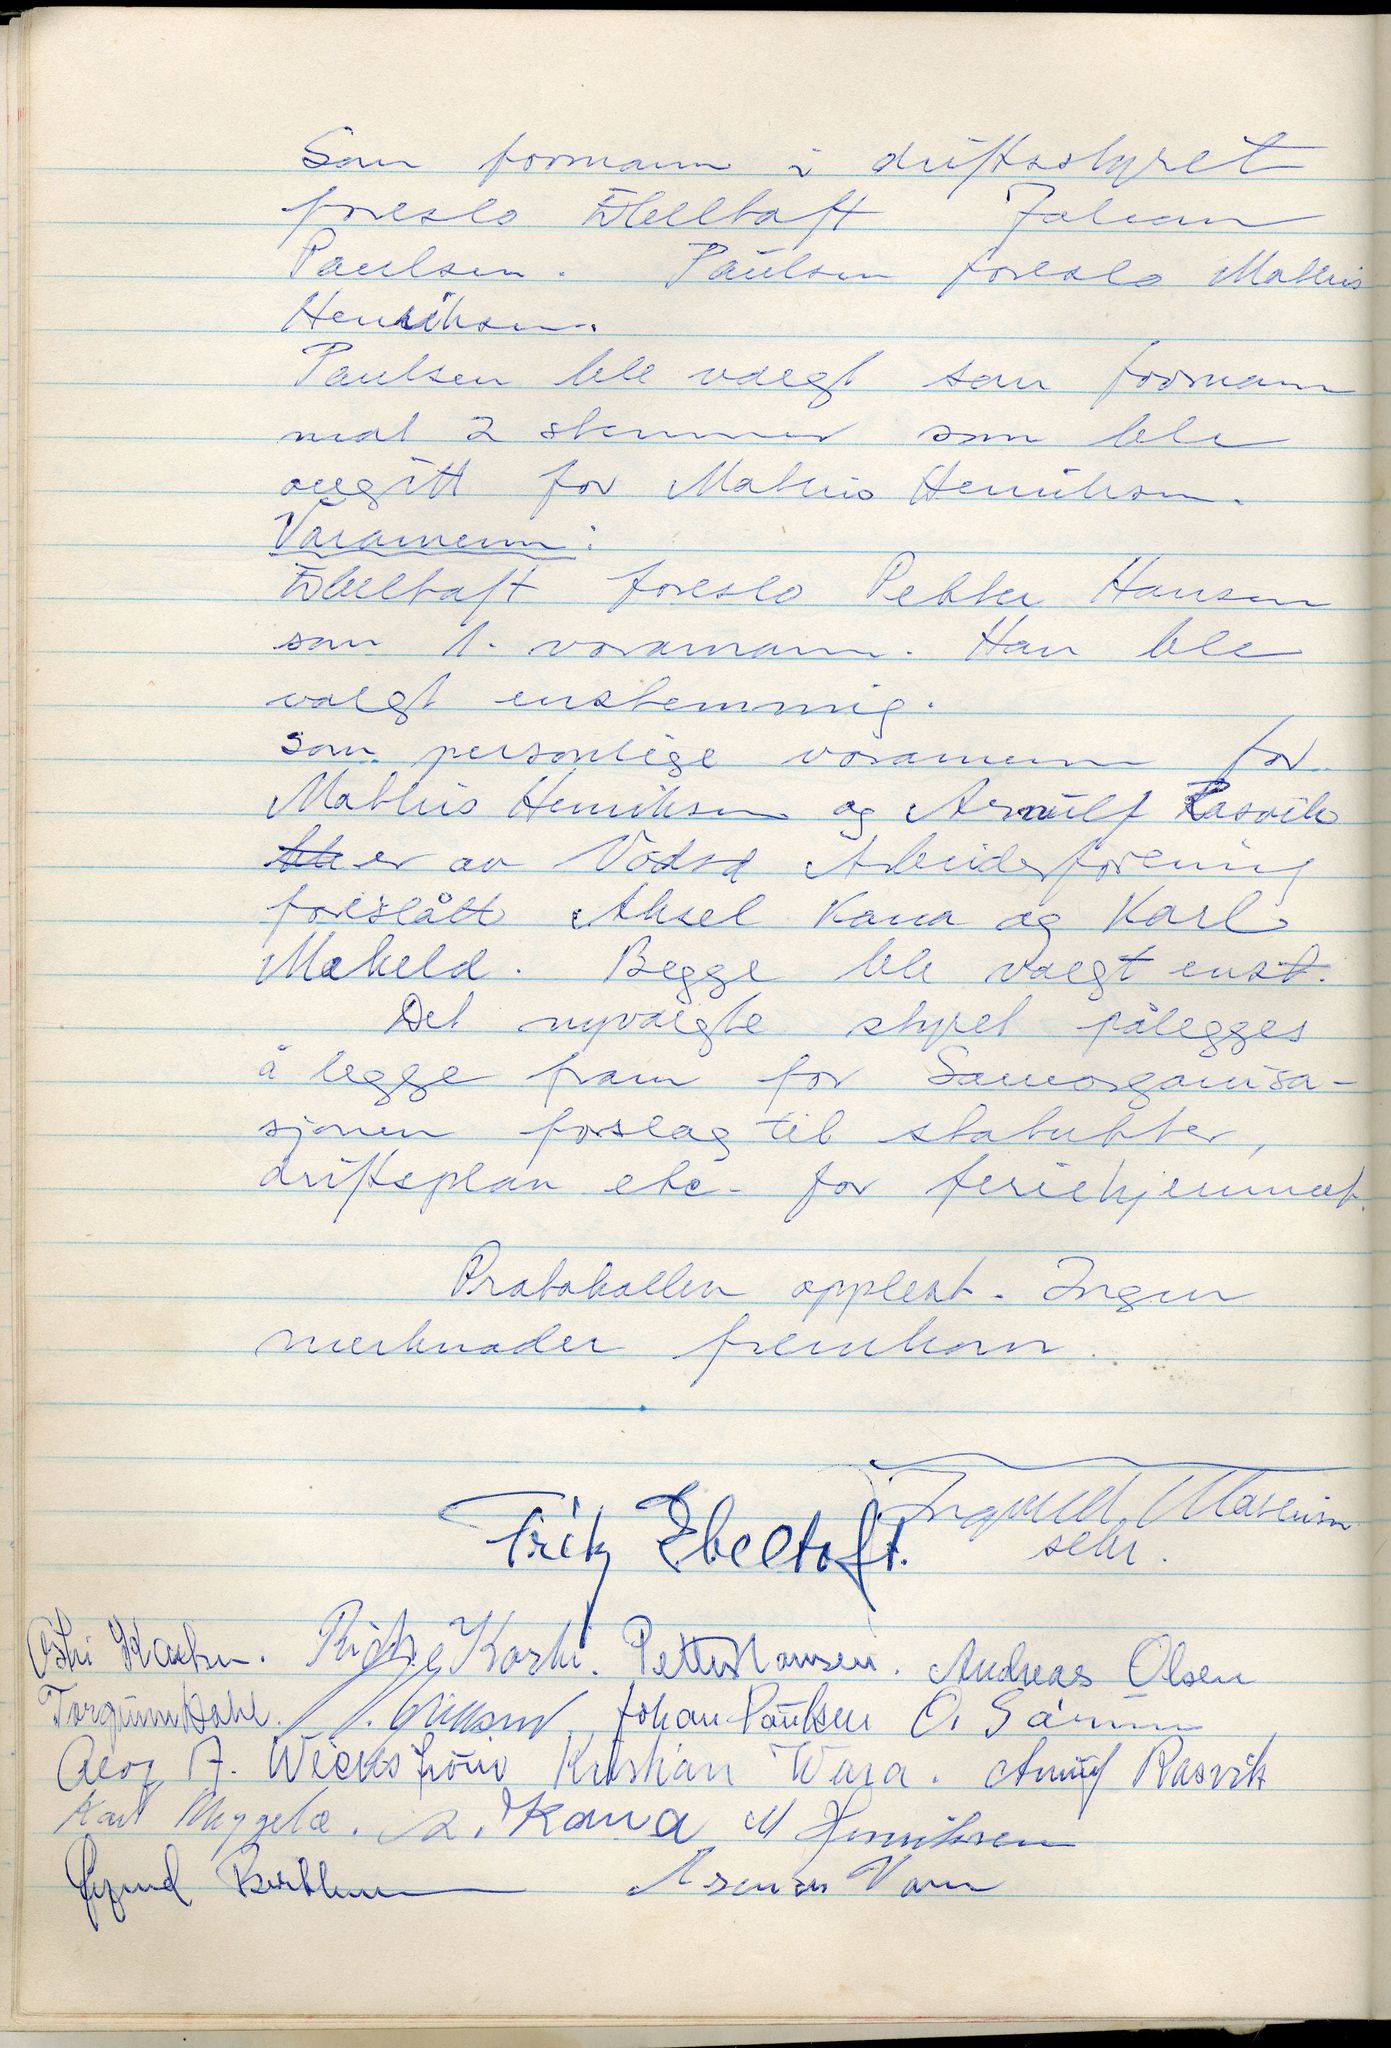 Som formann i driftsstyret
foreslo Ebeltoft Johan
Paulsen. Paulsen foreslo Mathis
Henriksen.
Paulsen ble valgt som formann
mot 2 stemmer som ble
avgitt for Mathis Henriksen.
Varamenn:
Ebeltoft foreslo Petter Hansen
som 1. varamann. Han ble
valgt enstemmig.
Som personlige varamenn for
Mathis Henriksen og Arnulf Rasvik
er av Vadsø Arbeiderforening
foreslått Aksel Kana og Karl
Begge ble valgt enst.
Det nyvalgte styret pålegges
å legge fram for Samorganisa-
sjonen forslag til statutter,
driftsplan etc. for feriehjemmet.
Protokollen opplest. Ingen
merknader fremkom.
Ingvald Mathisen
Fritz Ebeltoft. sekr.
Karhu. Koski. Petter Hansen. Andreas Olsen
Torgunn Dahl. Johan Paulsen O.
A. Wickstrøm Kristian Wara. Arnulf Rasvik
Karl A. Kana M Henriksen
Øyvind